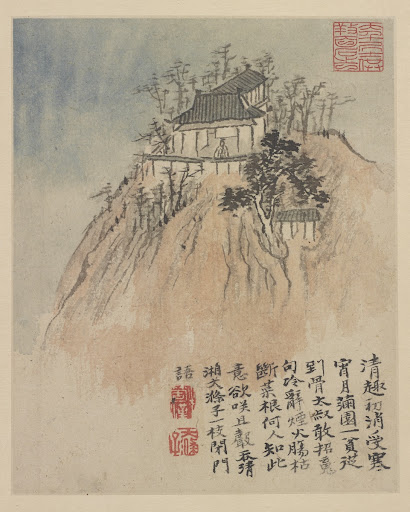 清趣初消受寒
宵月滿園一貧從
到骨太叔敢招魂
句冷辭煙火腸枯
斷菜根何人知此
意欲咲且聲吞清
湘大滌子枝閉門
語